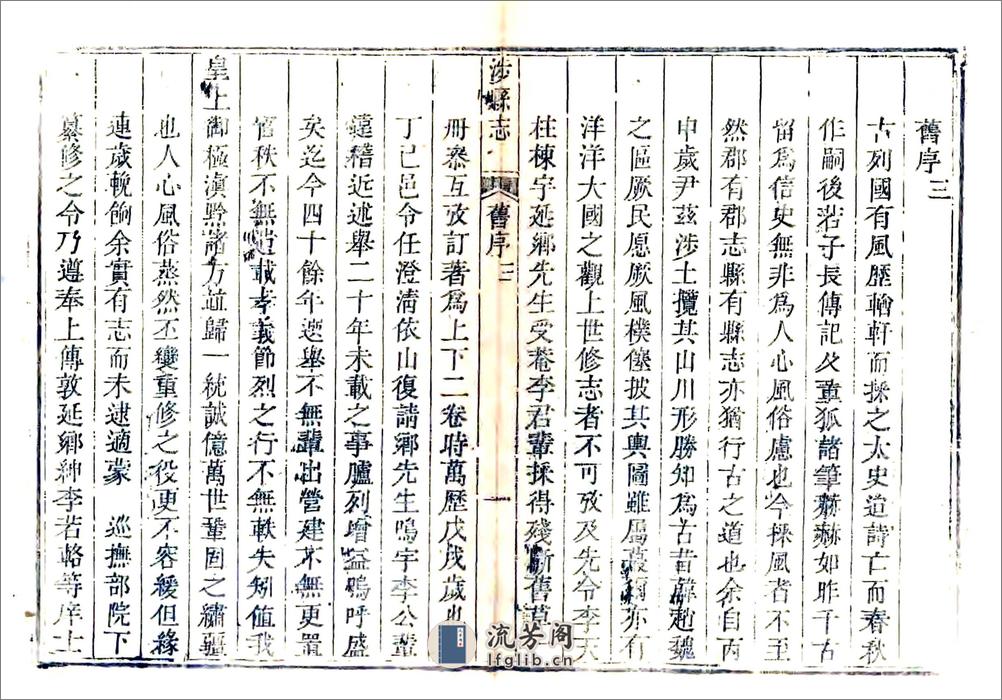 舊序三
古列國有風歷輶軒而採之太史迨詩亡而春秋
作嗣後若子長傳記及董狐諸筆赫赫如昨千古
留爲信史無非爲人心風俗慮也今採風者不至
然郡有郡志縣有縣志亦猶行古之道也余自丙
申歲尹茲涉土攬其山川形勝知爲古昔韓趙魏
之區厥民愿厥風樸僿披其輿圖雖屬蕞爾亦有
洋洋大國之觀上世修志者不可攷及先令李天
柱棟宇延鄉先生受菴李君輩採得殘斷舊草
涉縣志 舊序三 一
冊叅互攷訂著爲上下二卷時萬歷戊戌歲也
丁己邑令任澄清依山復請鄉先生鳴宇李公輩
遠稽近述舉二十年未載之事臚列增益嗚呼盛
矣迄今四十餘年選舉不無輩出營建不無更置
官秩不無造載孝義節烈之行不無軼失矧值我
皇上御極滇黔諸方竝歸一統誠億萬世鞏固之繡疆
也人心風俗蒸然丕變重修之役更不容緩但緣
連歲輓餉余實有志而未逮適蒙 巡撫部院下
纂修之令乃遵奉上傳敦延鄉紳李若輅等庠士
流芳阁
lfglib.cn